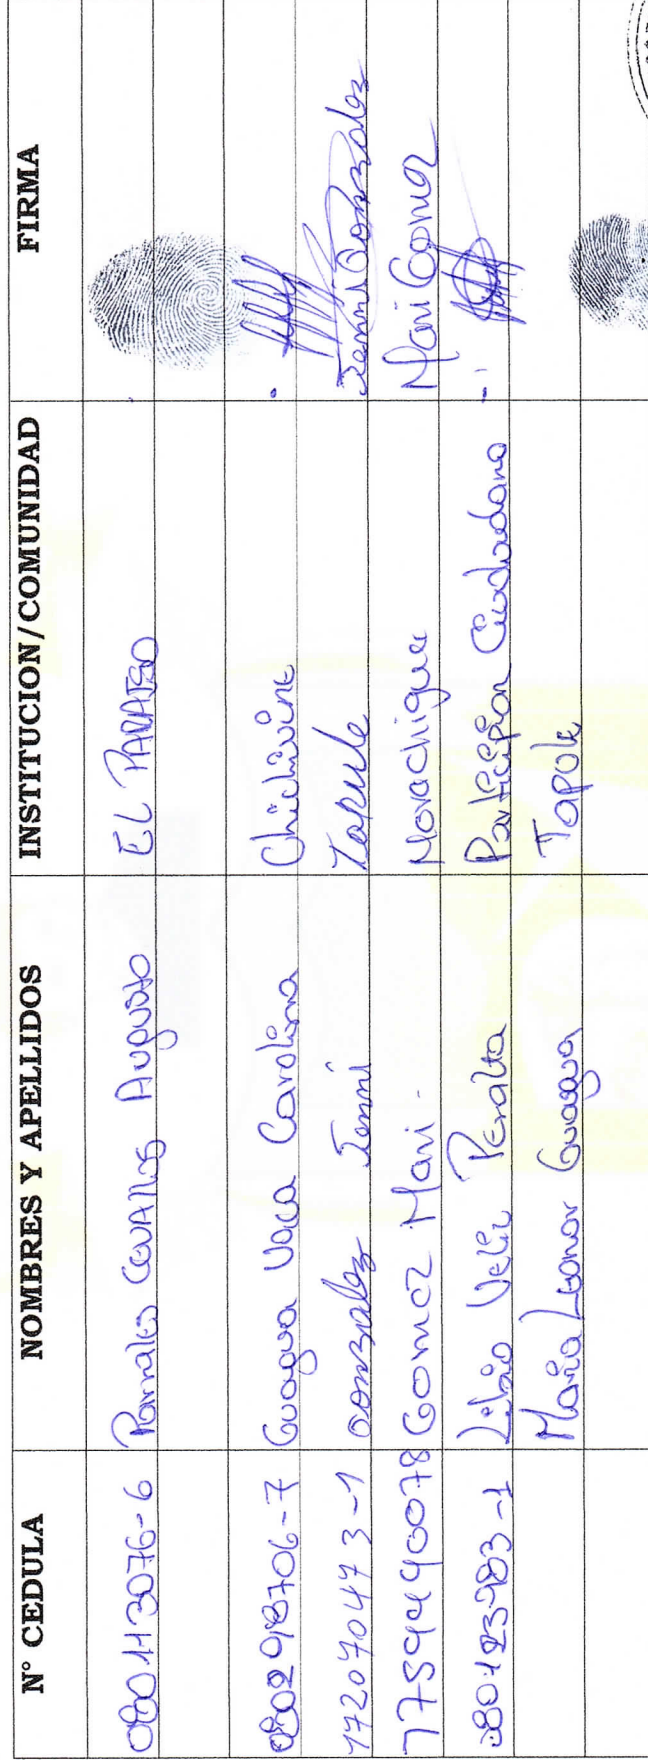 N° CEDULA NOMBRES Y APELLIDOS INSTITUCION/COMUNIDAD FIRMA
Parrales Cevallos Augusto EL PARAISO
080298706-7 Guagua Vaca Carolina Chichivine
172070473-1 Gonzalez Jenni Tapule Jenni Gonzalez
Gomez Mari - Mari Gomez
Libio Veliz Peralta Participación Ciudadana
Maria Leonor Guagua Tapule